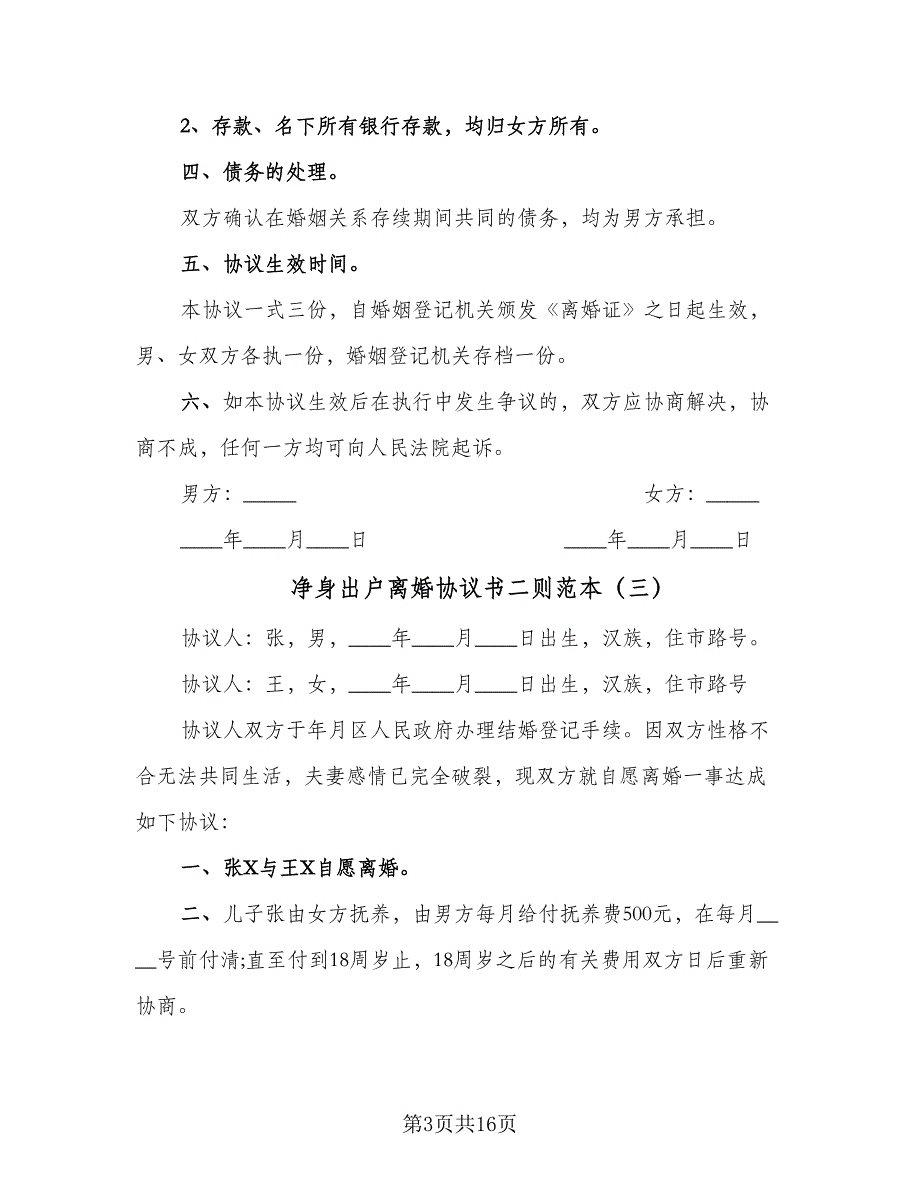 2、存款、名下所有银行存款，均归女方所有。
四、债务的处理。
双方确认在婚姻关系存续期间共同的债务，均为男方承担。
五、协议生效时间。
本协议一式三份，自婚姻登记机关颁发《离婚证》之日起生效，
男、女双方各执一份，婚姻登记机关存档一份。
六、如本协议生效后在执行中发生争议的，双方应协商解决，协
商不成，任何一方均可向人民法院起诉。
男方：_____ 女方：_____
____年____月____日 ____年____月____日
净身出户离婚协议书二则范本（三）
协议人：张，男，____年____月____日出生，汉族，住市路号。
协议人：王，女，____年____月____日出生，汉族，住市路号
协议人双方于年月区人民政府办理结婚登记手续。因双方性格不
合无法共同生活，夫妻感情已完全破裂，现双方就自愿离婚一事达成
如下协议：
一、张X与王X自愿离婚。
二、儿子张由女方抚养，由男方每月给付抚养费500元，在每月__
__号前付清;直至付到18周岁止，18周岁之后的有关费用双方日后重新
协商。
第3页共16页